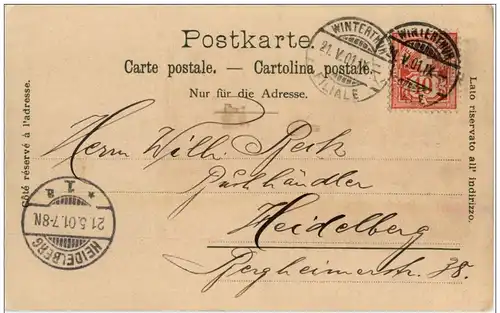 Postkarte.
WINTERTHUR
21.V.01.IX
FILIALE
WINTERTHUR
V.01.IX
Carte postale. — Cartolina postale.
Nur für die Adresse.
Côté réservé à l'adresse.
Lato riservato all' indirizzo.
Herrn Wilh. Beck
Buchhändler
Heidelberg
Bergheimerstr. 38.
* 1 a
21.5.01.7-8N
HEIDELBERG